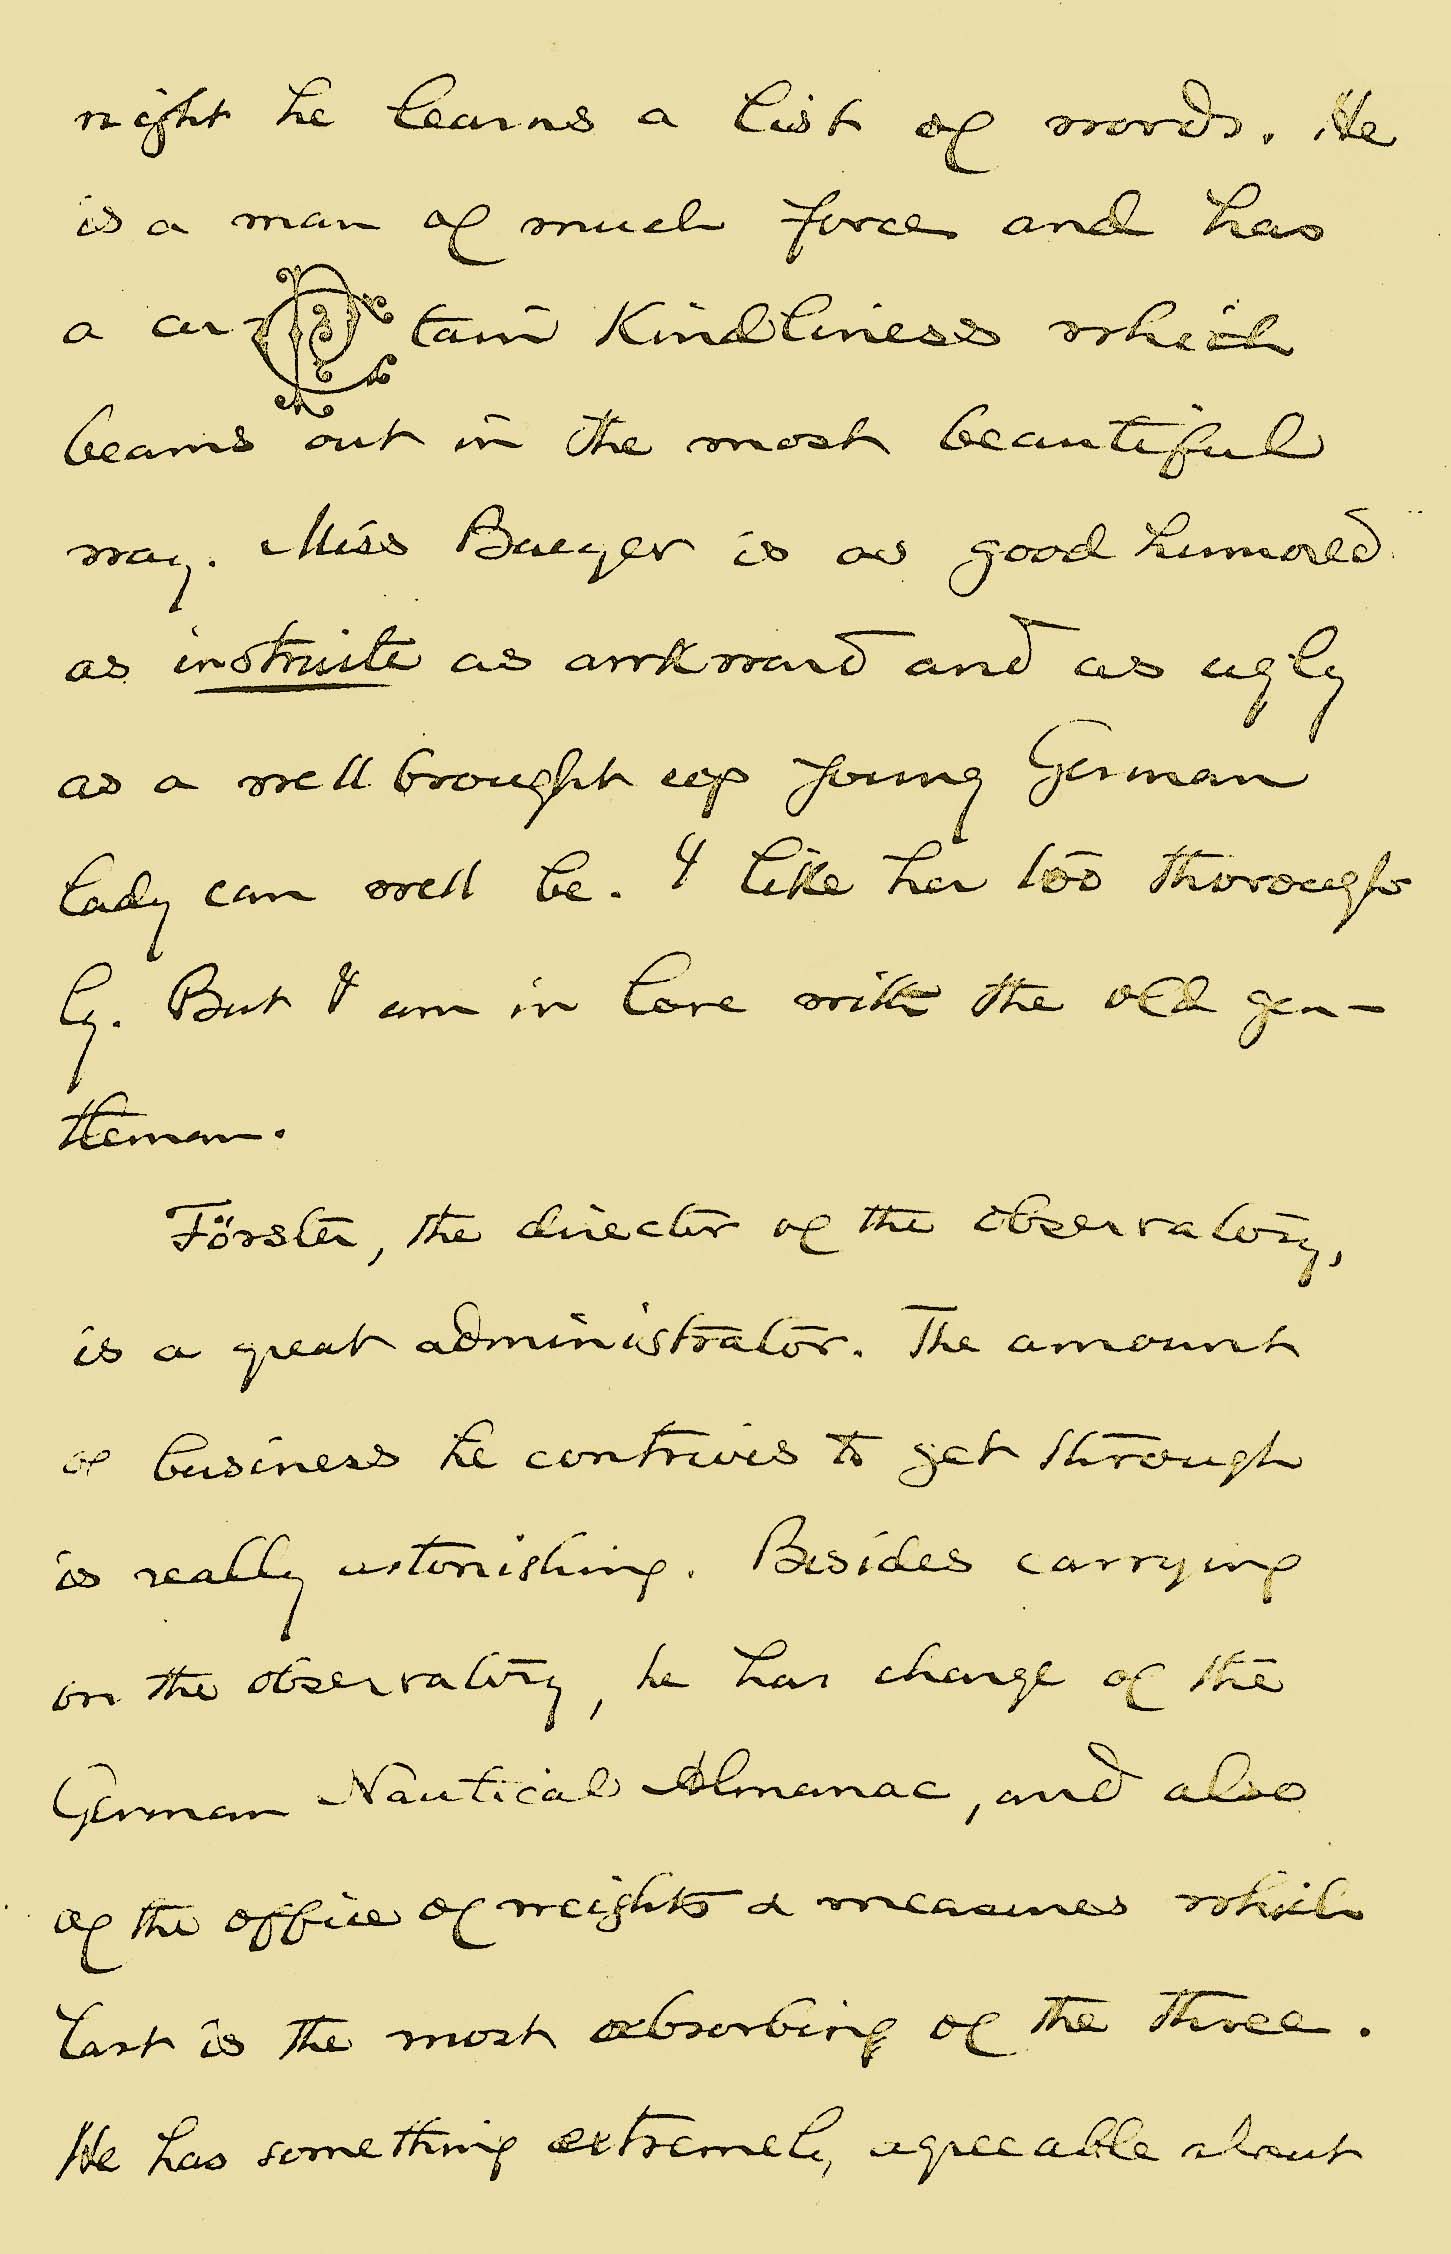 night he learns a list of words. He
is a man of much force and has
a cer- tain kindliness which
beams out in the most beautiful
way. Miss Baeyer is as good humored
as instruite as awkward and as ugly
as a well brought up young German
lady can well be. I like her too thorough
ly. But I am in love with the old gen-
tleman.
Förster, the director of the observatory,
is a great administrator. The amount
of business he contrives to get through
is really astonishing. Besides carrying
on the observatory, he has charge of the
German Nautical Almanac, and also
of the office of weights & measures which
last is the most absorbing of the three.
He has something extremely agreeable about